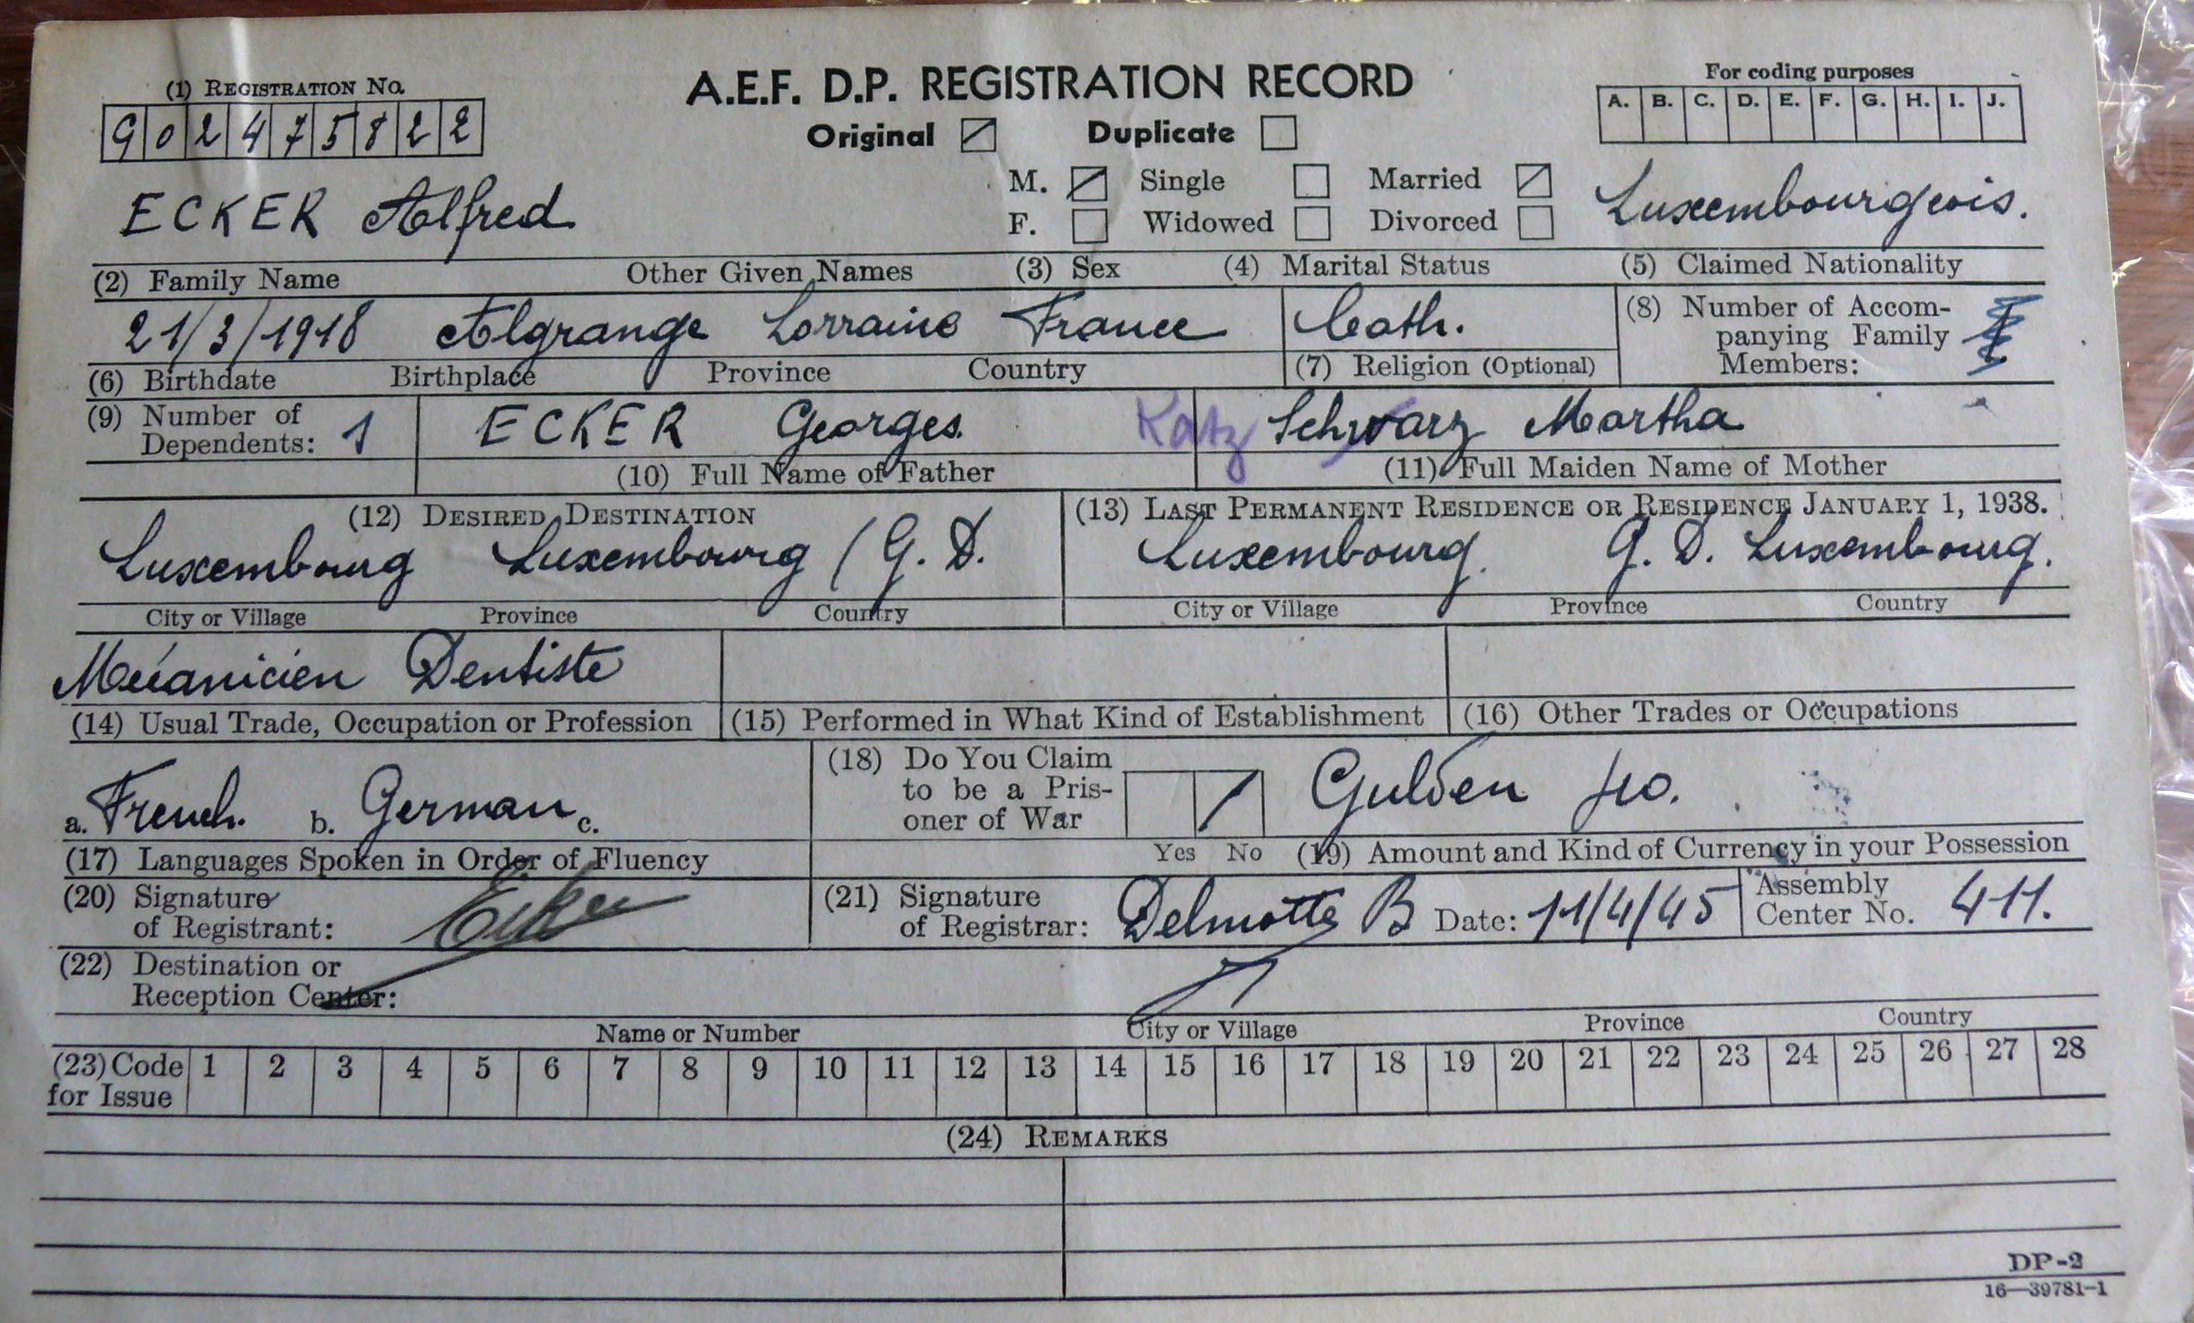 (1) REGISTRATION No.
G02475822
A.E.F. D.P. REGISTRATION RECORD
Original Duplicate
For coding purposes
A. B. C. D. E. F. G. H. I. J.
ECKER Alfred
M. Single Married
F. Widowed Divorced
Luxembourgeois.
(2) Family Name Other Given Names (3) Sex (4) Marital Status (5) Claimed Nationality
21/3/1918 Algrange Lorraine France Cath.
(6) Birthdate Birthplace Province Country (7) Religion (Optional)
(8) Number of Accom-
panying Family
Members:
(9) Number of
Dependents: 1
ECKER Georges
(10) Full Name of Father
Katz Schwarz Martha
(11) Full Maiden Name of Mother
(12) DESIRED DESTINATION
Luxembourg Luxembourg (G. D.
City or Village Province Country
(13) LAST PERMANENT RESIDENCE OR RESIDENCE JANUARY 1, 1938.
Luxembourg. G. D. Luxembourg.
City or Village Province Country
Mécanicien Dentiste
(14) Usual Trade, Occupation or Profession (15) Performed in What Kind of Establishment (16) Other Trades or Occupations
a. French. b. German c.
(17) Languages Spoken in Order of Fluency
(18) Do You Claim
to be a Pris-
oner of War
Yes No
Gulden
(19) Amount and Kind of Currency in your Possession
(20) Signature
of Registrant: Ecker
(21) Signature
of Registrar: Delmotte B Date: 11/4/45
Assembly
Center No. 411.
(22) Destination or
Reception Center:
Name or Number City or Village Province Country
(23) Code
for Issue
1 2 3 4 5 6 7 8 9 10 11 12 13 14 15 16 17 18 19 20 21 22 23 24 25 26 27 28
(24) REMARKS
DP-2
16—39781-1